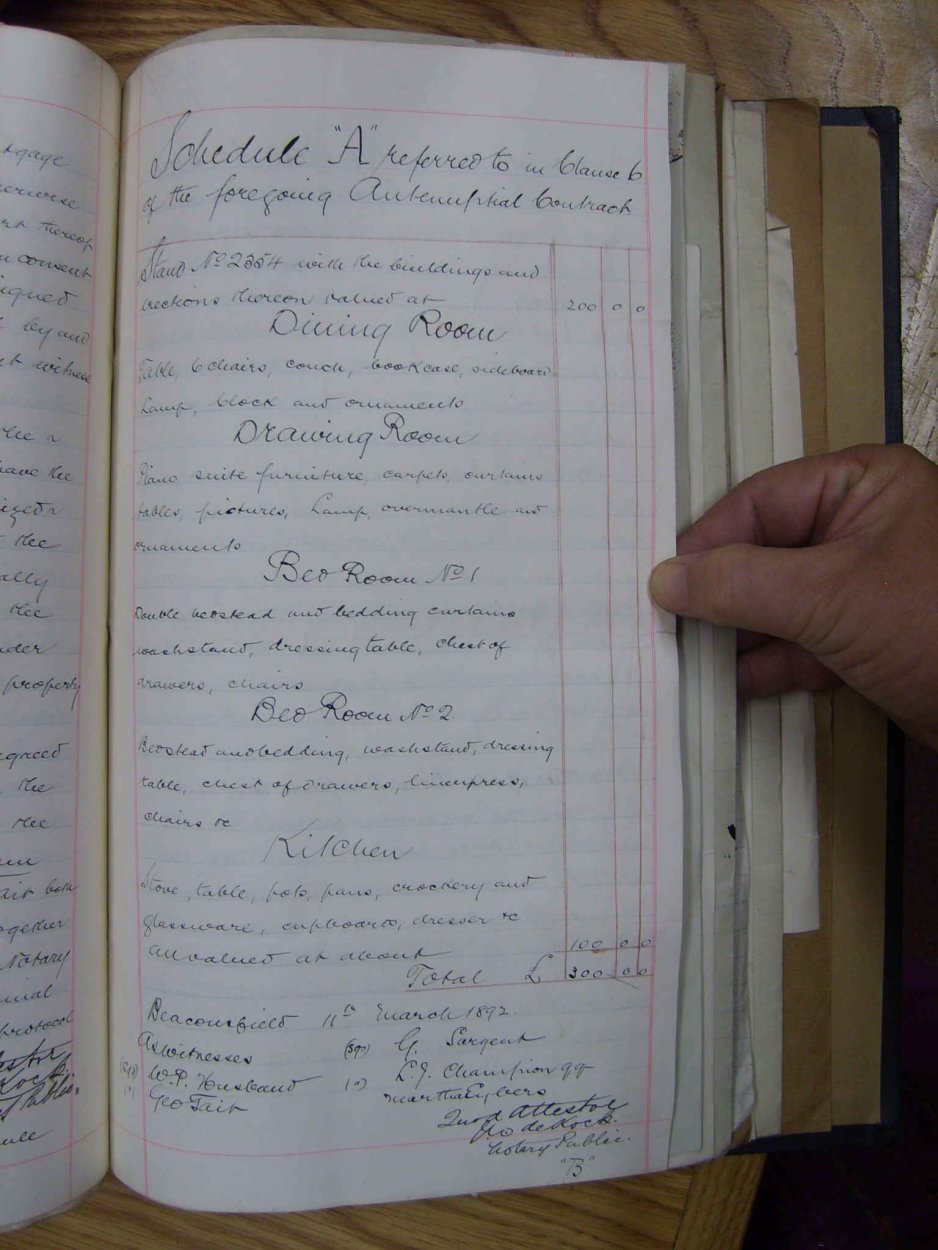 tgage
erwise
art thereof
consent
igned
by and
witness
the
have the
the
ally
the
nder
property
agreed
the
the
Tait both
together
Notary
protocol
Schedule "A" referred to in Clause 6
of the foregoing Antenuptial Contract
Stand No 2354 with the buildings and
erections thereon valued at 200 0 0
Dining Room
Table, 6 chairs, couch, bookcase, sideboard
Lamp, Clock and ornaments
Drawing Room
Piano, suite furniture, carpets, curtains
tables, pictures, Lamp, overmantle and
ornaments
Bed Room No 1
Double bedstead and bedding curtains
washstand, dressing table, chest of
drawers, chairs
Bed Room No 2.
Bedstead and bedding, washstand, dressing
table, chest of drawers, linenpress,
chairs &c
Kitchen
Stove, table, pots, pans, crockery and
glassware, cupboards, dresser &c
all valued at about 100 0 0
Total £ 300 0 0
Beaconsfield 11th March 1892.
As Witnesses (sgd) G. Sargent
(sgd) W. P. Husband (") L. J. Champion qq
(") Geo Tait Martha Eybers
Quod Attestor
Jno de Kock.
Notary Public.
"B"